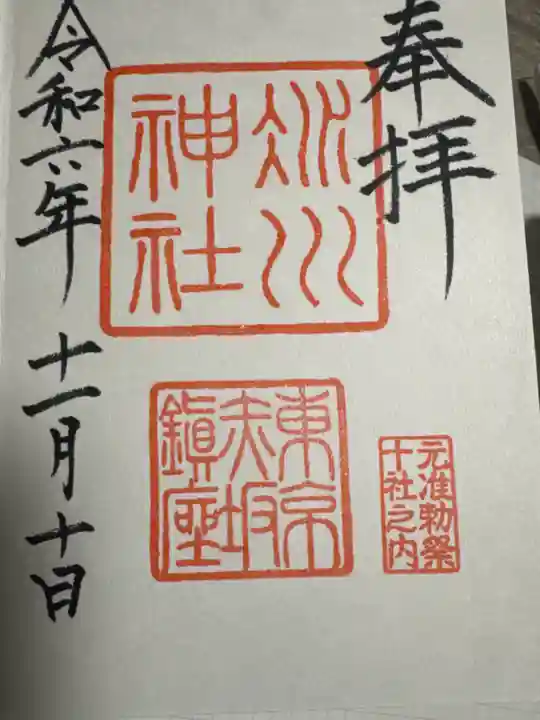 奉拝
氷川
神社
東京
赤坂
鎮座
元准勅祭
十社之内
令和六年 十一月十日